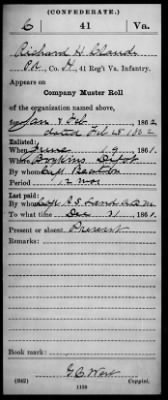 (CONFEDERATE.)
C 41 Va.
Richard H.
Co. H, 41 Reg't Va. Infantry.
Appears on
Company Muster Roll
of the organization named above,
for Jan & Feb, 1862.
dated Feb 28 1862
Enlisted:
When June 19, 1861.
Where Boykins Depot
By whom Capt
Period 12 mos
Last paid:
By whom Capt
To what time Dec 31, 1861.
Present or absent Present
Remarks:
Book mark:
G.C. West
(642) Copyist.